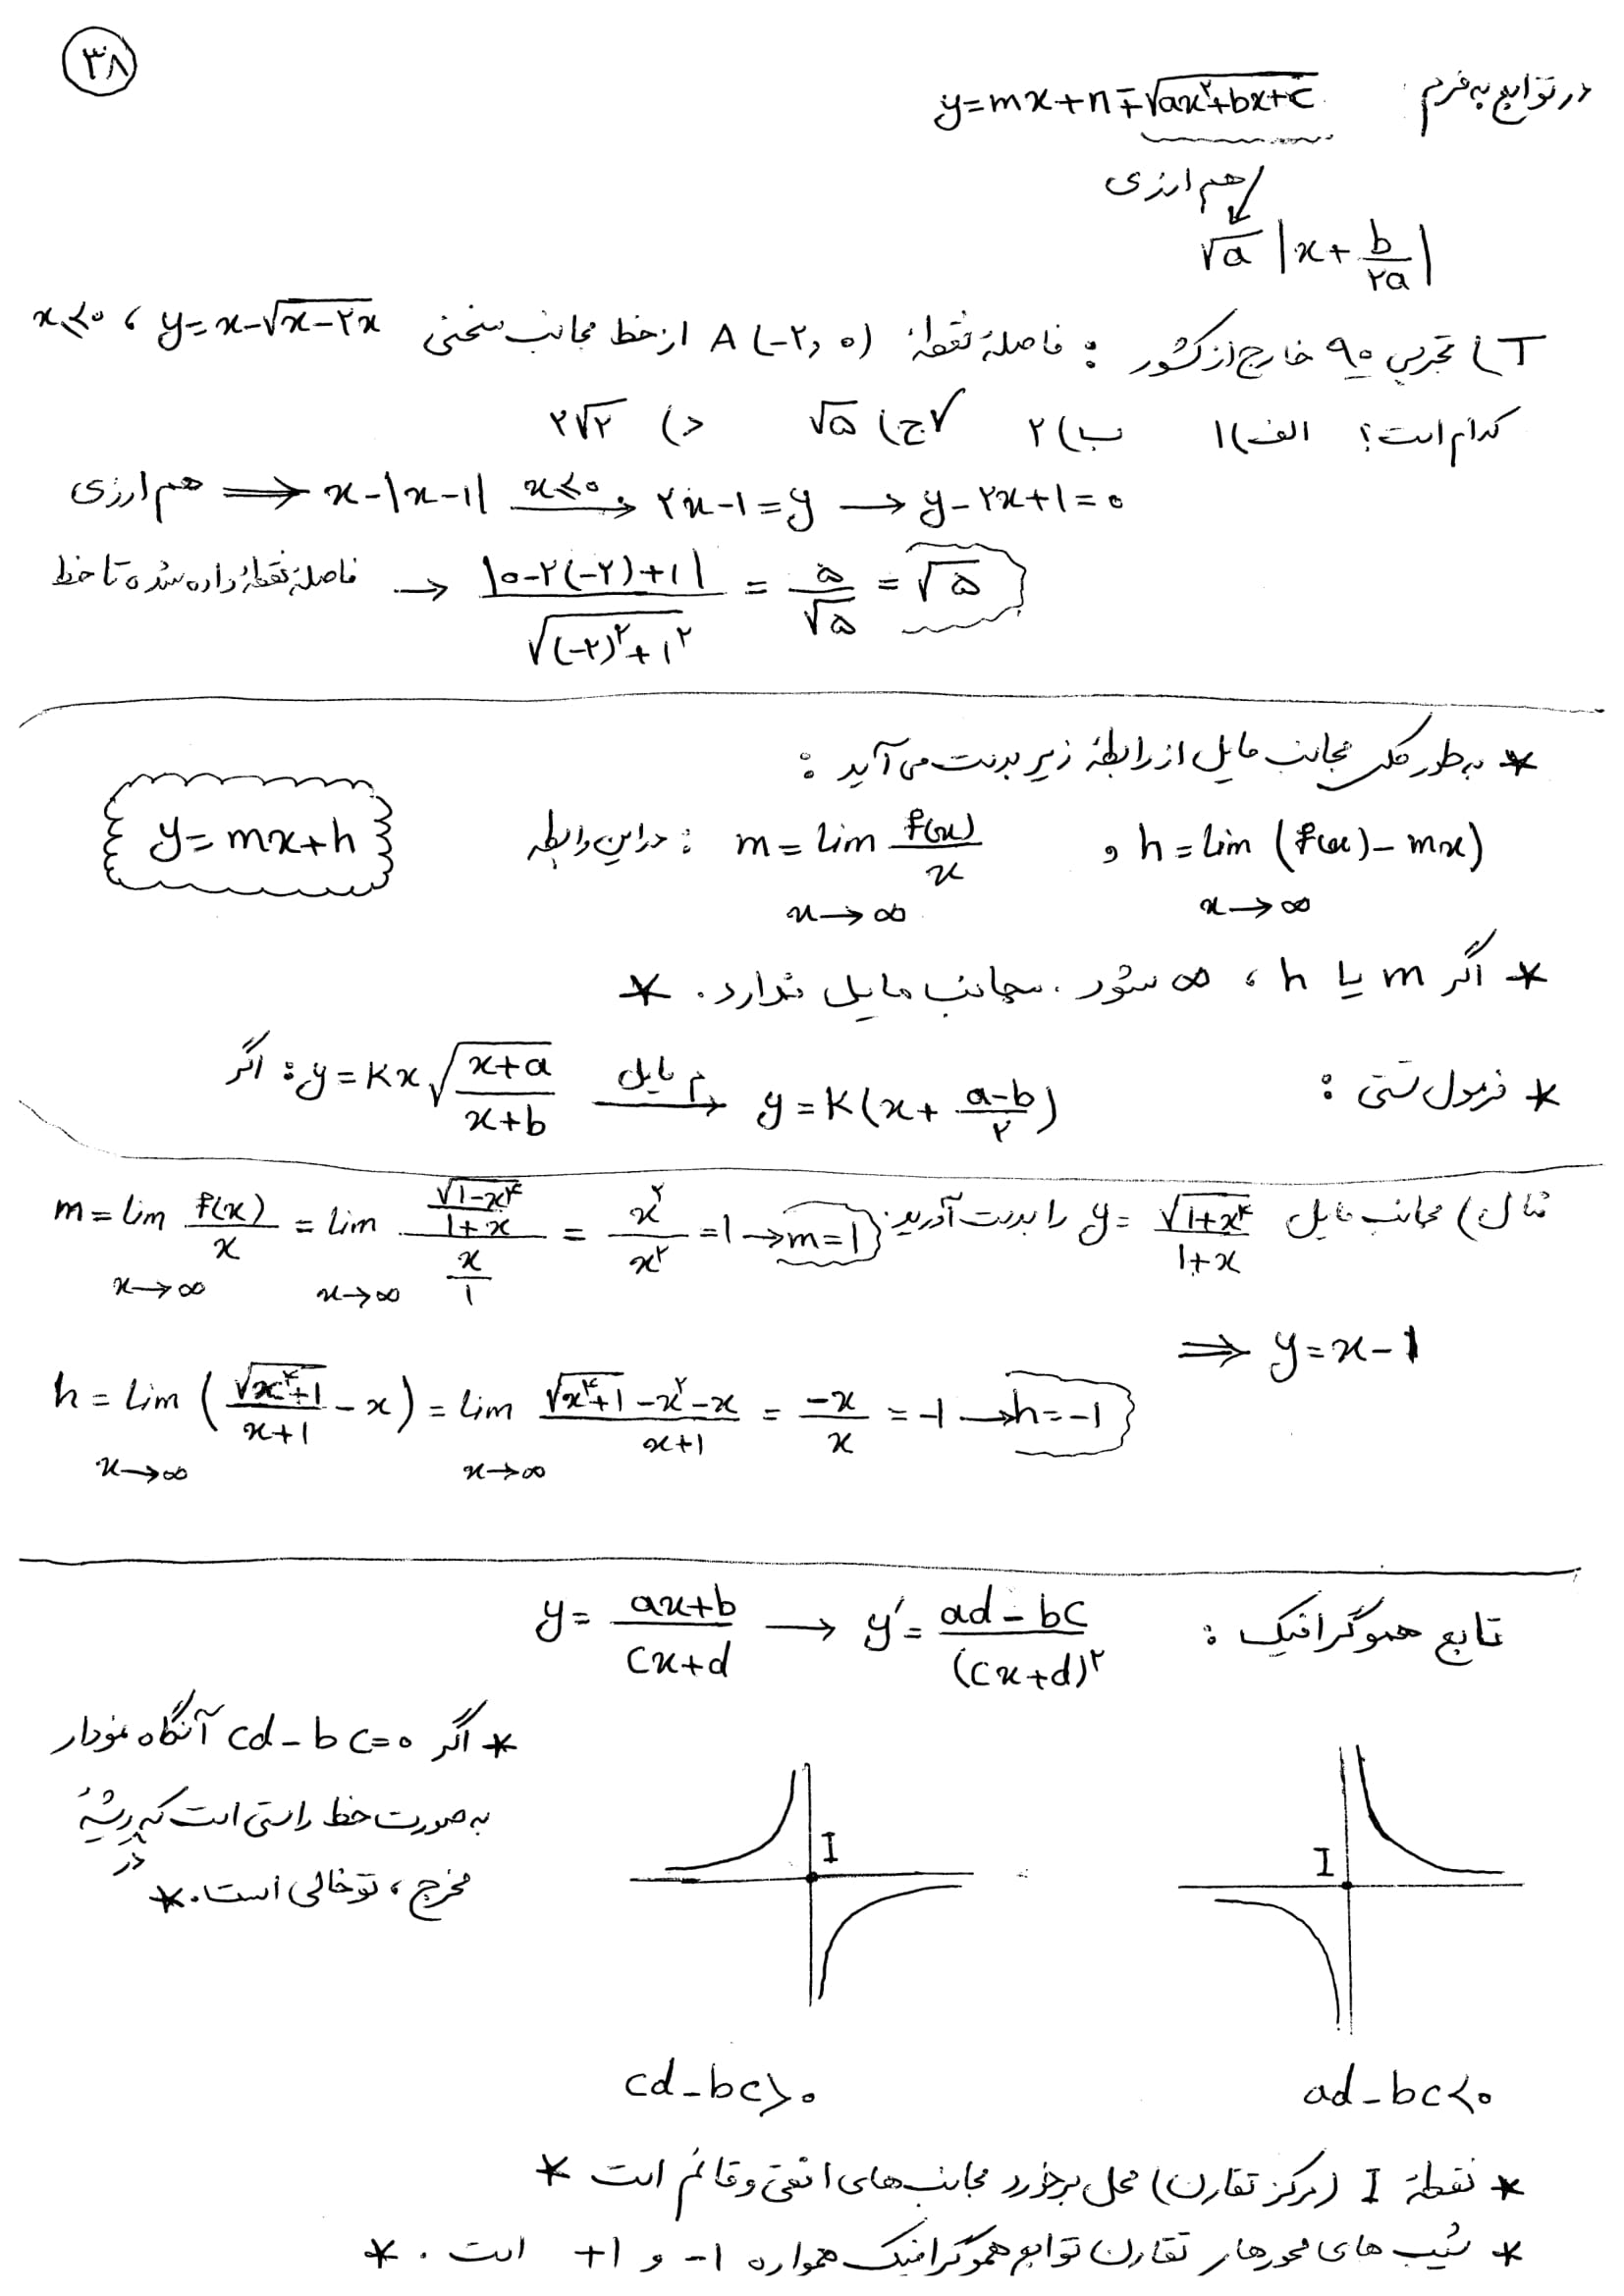 ۳۸
در توابع به فرم y=mx+n∓√(ax²+bx+c)
هم ارزی
√a |x + b/۲a|
T) تجربی ۹۰ خارج از کشور : فاصلهٔ نقطهٔ A(-۲,۰) از خط مجانب منحنی y=x-√(x-۲x) ، x<۰
کدام است؟ الف) ۱ ب) ۲ ✓ج) √۵ د) ۲√۲
هم ارزی ⟹ x-|x-1| —x<۰→ ۲x-1=y → y-۲x+1=۰
فاصلهٔ نقطهٔ داده شده تا خط → |۰-۲(-۲)+1| / √((-۲)^۲+1^۲) = ۵/√۵ = √۵
* به طور کلی مجانب مایل از رابطهٔ زیر بدست می آید :
y=mx+h در این رابطه : m = lim f(x)/x و h = lim (f(x)-mx)
x→∞ x→∞
* اگر m یا h ، ∞ شود . مجانب مایل ندارد . *
* فرمول تستی :
اگر : y=Kx√((x+a)/(x+b)) —م مایل→ y=K(x+ (a-b)/۲)
مثال) مجانب مایل y= √(1+x^۴)/(1+x) را بدست آورید.
m = lim f(x)/x = lim (√(1-x^۴)/(1+x))/(x/1) = x^۲/x^۲ =1 → m=1
x→∞ x→∞
⟹ y=x-1
h = lim ( √(x^۴+1)/(x+1) - x) = lim (√(x^۴+1) -x^۲-x)/(x+1) = -x/x = -1 → h=-1
x→∞ x→∞
تابع هموگرافیک : y= (ax+b)/(cx+d) → y'= (ad-bc)/(cx+d)^۲
* اگر cd-bc=۰ آنگاه نمودار
به صورت خط راستی است که در ریشهٔ
مخرج ، توخالی است. *
I
I
cd-bc>۰
ad-bc<۰
* نقطهٔ I (مرکز تقارن) محل برخورد مجانب های افقی و قائم است *
* شیب های محورهای تقارن توابع هموگرافیک همواره -1 و +1 است . *